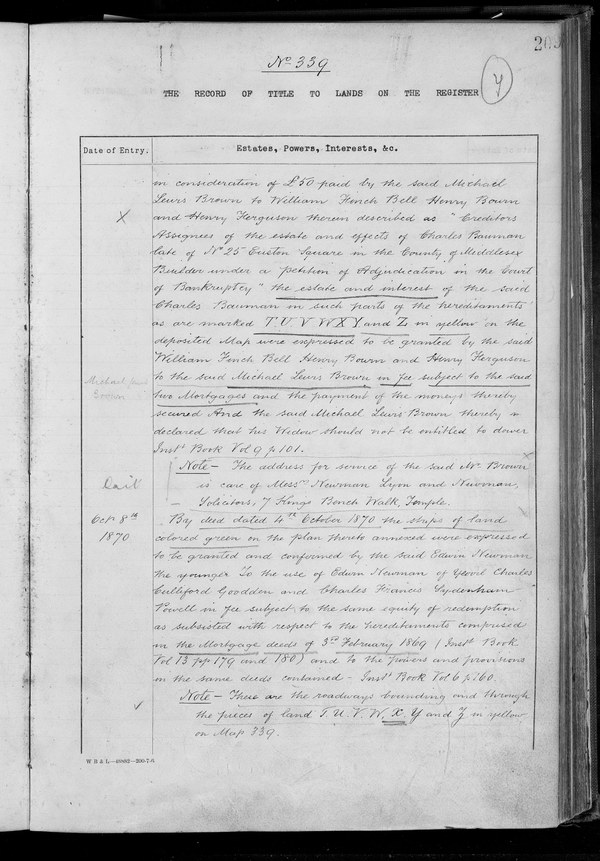 No 339
THE RECORD OF TITLE TO LANDS ON THE REGISTER
Y
Date of Entry.
Estates, Powers, Interests, &c.
in consideration of £50 paid by the said Michael
Lewis Brown to William Finch Bell Henry Bourn
X
and Henry Ferguson therein described as "Creditors
Assignees of the estate and effects of Charles Bauman
late of No 25 Euston Square in the County of Middlesex
Builder under a petition of Adjudication in the Court
of Bankruptcy" the estate and interest of the said
Charles Bauman in such parts of the hereditaments
as are marked T. U. V. W X Y and Z in yellow on the
deposited Map were expressed to be granted by the said
William Finch Bell Henry Bourn and Henry Ferguson
to the said Michael Lewis Brown in fee subject to the said
two Mortgages and the payment of the moneys thereby
secured And the said Michael Lewis Brown thereby
declared that his Widow should not be entitled to dower
Inst Book Vol 9 p 101.
Note - The address for service of the said Mr. Brown
is care of Messrs Newman Lyon and Newman,
Solicitors, 7 Kings Bench Walk, Temple.
Oct 8th
1870
By deed dated 4th October 1870 the strips of land
colored green on the plan thereto annexed were expressed
to be granted and confirmed by the said Edwin Newman
the younger To the use of Edwin Newman of Yeovil Charles
Culliford Goodden and Charles Francis Sydenham
Powell in fee subject to the same equity of redemption
as subsisted with respect to the hereditaments comprised
in the Mortgage deeds of 3rd February 1869 (Inst Book
Vol 13 pp 179 and 180) and to the powers and provisions
in the same deeds contained - Inst Book Vol 6 p 160.
Note - These are the roadways bounding and through
the pieces of land T. U. V. W, X Y and Z in yellow
on Map 339.
W B & L